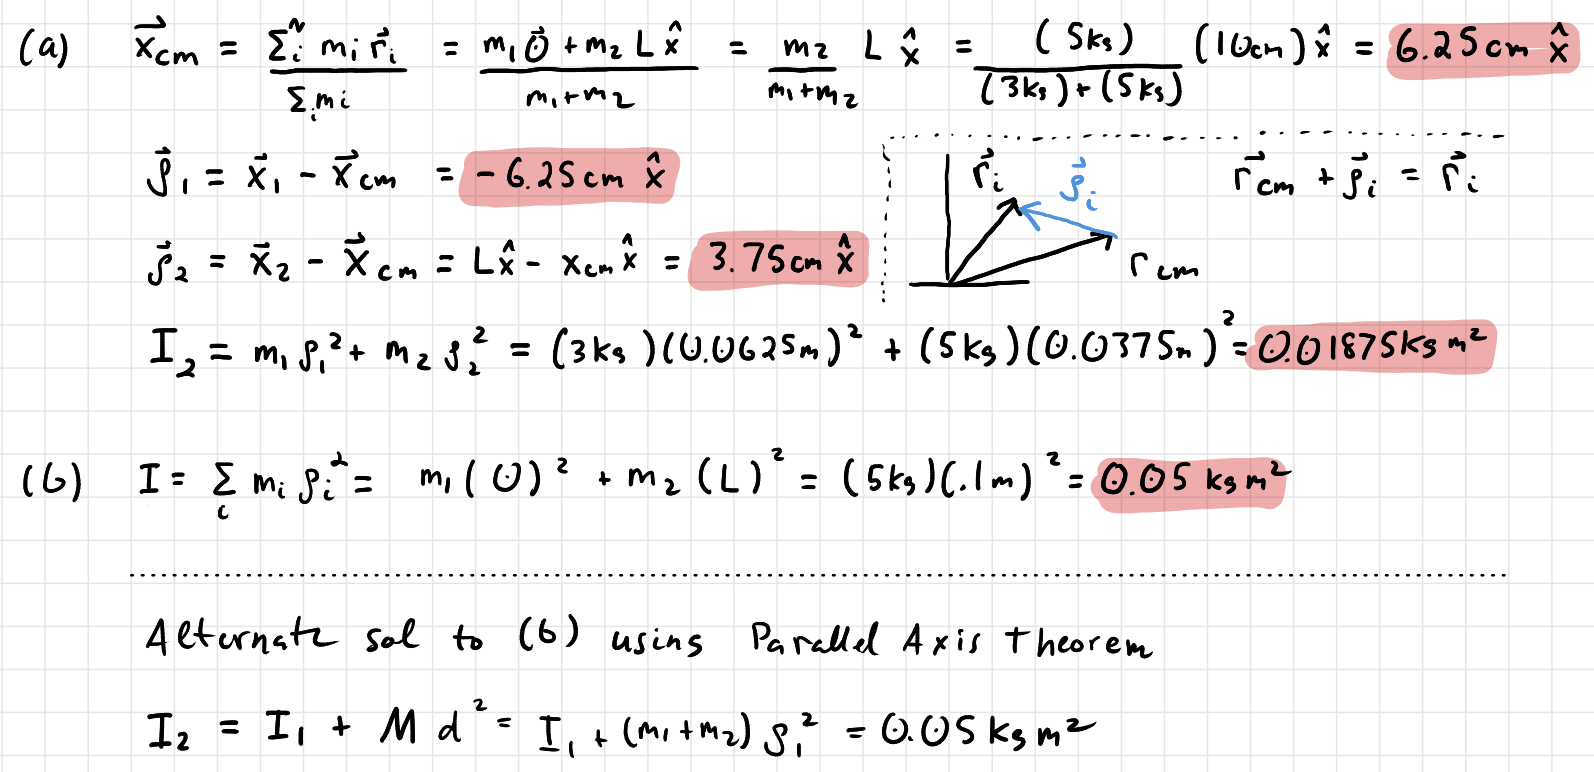 (a) x⃗cm = Σᵢᴺ mᵢ r⃗ᵢ / Σᵢ mᵢ = (m₁ 0⃗ + m₂ L x̂) / (m₁+m₂) = m₂ / (m₁+m₂) L x̂ = (5kg) / ((3kg)+(5kg)) (10cm) x̂ = 6.25cm x̂
ρ⃗₁ = x⃗₁ − x⃗cm = −6.25cm x̂
r⃗ᵢ ρ⃗ᵢ r⃗cm + ρ⃗ᵢ = r⃗ᵢ
ρ⃗₂ = x⃗₂ − x⃗cm = Lx̂ − xcm x̂ = 3.75cm x̂
rcm
I₂ = m₁ρ₁² + m₂ρ₂² = (3kg)(0.0625m)² + (5kg)(0.0375m)² = 0.01875kg m²
(b) I = Σᵢ mᵢ ρᵢ² = m₁(0)² + m₂(L)² = (5kg)(.1m)² = 0.05 kg m²
Alternate sol to (b) using Parallel Axis theorem
I₂ = I₁ + M d² = I₁ + (m₁+m₂) ρ₁² = 0.05 kg m²